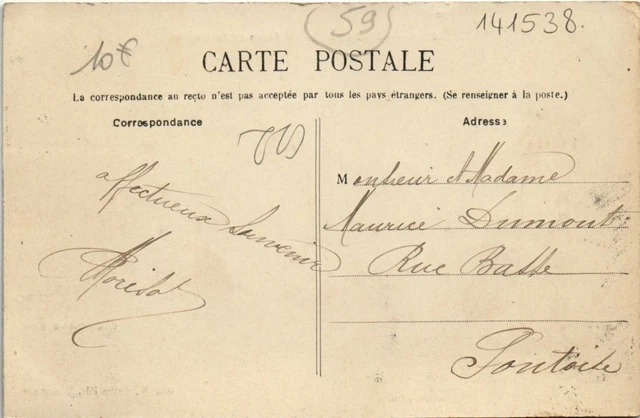 59
141538.
10€
CARTE POSTALE
La correspondance au recto n'est pas acceptée par tous les pays étrangers. (Se renseigner à la poste.)
Correspondance
Adresse
affectueux Souvenir
Monsieur et Madame
Maurice Dumont
Rue Basse
Pontoise